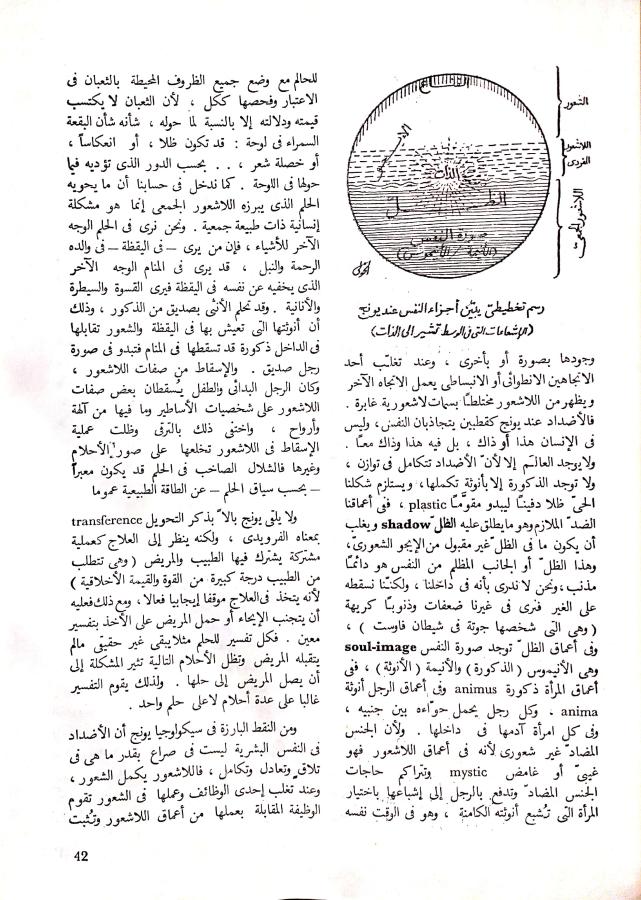 الشعور
اللاشعور
الفردى
اللاشعور الجمعى
الأنا
الذات
الظل
صورة النفس
(الأنيمة / الأنيموس)
رسم تخطيطى يبيّن أجزاء النفس عند يونج
(الإشعاعات التى فى الوسط تشير الى الذات)
وجودها بصورة أو بأخرى ، وعند تغلّب أحد
الاتجاهين الانطوائى أو الانبساطى يعمل الاتجاه الآخر
ويظهر من اللاشعور مختلطًا بسمات لاشعورية غابرة .
فالأضداد عند يونج كقطبين يتجاذبان النفس، وليس
فى الإنسان هذا أو ذاك ، بل فيه هذا وذاك معًا .
ولايوجد العالـم إلا لأنّ الأضداد تتكامل فى توازن ،
ولا توجد الذكورة إلا بأنوثة تكملها، ويستلزم شكلنا
الحىّ ظلا دفينًا ليبدو مقومًا plastic ، فى أعماقنا
الضدّ الملازم وهو ما يطلق عليه الظل shadow ويغلب
أن يكون ما فى الظل غير مقبول من الإيجو الشعورى،
وهذا الظلّ أو الجانب المظلم من النفس هو دائمًا
مذنب، ونحن لا ندرى بأنه فى داخلنا ، ولكنّنا نسقطه
على الغير فنرى فى غيرنا ضعفات وذنوبًا كريهة
( وهى التى شخصها جوتة فى شيطان فاوست ) ،
وفى أعماق الظلّ توجد صورة النفس soul-image
وهى الأنيموس (الذكورة) والأنيمة (الأنوثة) ، ففى
أعماق المرأة ذكورة animus وفى أعماق الرجل أنوثة
anima . وكل رجل يحمل حوّاءه بين جنبيه ،
وفى كل امرأة آدمها فى داخلها . ولأن الجنس
المضادّ غير شعورى لأنه فى أعماق اللاشعور فهو
غيبىّ أو غامض mystic وتتراكم حاجات
الجنس المضادّ وتدفع بالرجل إلى إشباعها باختيار
المرأة التى تُشبع أنوثته الكامنة ، وهو فى الوقت نفسه
للحالم مع وضع جميع الظروف المحيطة بالثعبان فى
الاعتبار وفحصها ككل ، لأن الثعبان لا يكتسب
قيمته ودلالته إلا بالنسبة لما حوله ، شأنه شأن البقعة
السمراء فى لوحة : قد تكون ظلا ، أو انعكاساً ،
أو خصلة شعر ، . . بحسب الدور الذى تؤديه فيما
حولها فى اللوحة . كما ندخل فى حسابنا أن ما يحويه
الحلم الذى يبرزه اللاشعور الجمعى إنما هو مشكلة
إنسانية ذات طبيعة جمعية . ونحن نرى فى الحلم الوجه
الآخر للأشياء ، فإن من يرى — فى اليقظة — فى والده
الرحمة والنبل ، قد يرى فى المنام الوجه الآخر
الذى يخفيه عن نفسه فى اليقظة فيرى القسوة والسيطرة
والأنانية . وقد تحلم الأنثى بصديق من الذكور ، وذلك
أن أنوثتها التى تعيش بها فى اليقظة والشعور تقابلها
فى الداخل ذكورة قد تسقطها فى المنام فتبدو فى صورة
رجل صديق . والإسقاط من صفات اللاشعور ،
وكان الرجل البدائى والطفل يُسقطان بعض صفات
اللاشعور على شخصيات الأساطير وما فيها من آلهة
وأرواح ، واختفى ذلك بالترقى وظلت عملية
الإسقاط فى اللاشعور تخلعها على صور الأحلام
وغيرها فالشلال الصاخب فى الحلم قد يكون معبراً
— بحسب سياق الحلم — عن الطاقة الطبيعية عموما
ولا يلقى يونج بالاً بذكر التحويل transference
بمعناه الفرويدى ، ولكنه ينظر إلى العلاج كعملية
مشتركة يشترك فيها الطبيب والمريض ( وهى تتطلب
من الطبيب درجة كبيرة من القوة والقيمة الأخلاقية )
لأنه يتخذ فى العلاج موقفا إيجابيا فعالا، ومع ذلك فعليه
أن يتجنب الإيحاء أو حمل المريض على الأخذ بتفسير
معين . فكل تفسير للحلم مثلا يبقى غير حقيقى مالم
يتقبله المريض وتظل الأحلام التالية تثير المشكلة إلى
أن يصل المريض إلى حلها . ولذلك يقوم التفسير
غالبا على عدة أحلام لا على حلم واحد .
ومن النقط البارزة فى سيكولوجيا يونج أن الأضداد
فى النفس البشرية ليست فى صراع بقدر ما هى فى
تلاق وتعادل وتكامل ، فاللاشعور يكمل الشعور ،
وعند تغلب إحدى الوظائف وعملها فى الشعور تقوم
الوظيفة المقابلة بعملها من أعماق اللاشعور وتُثبت
42